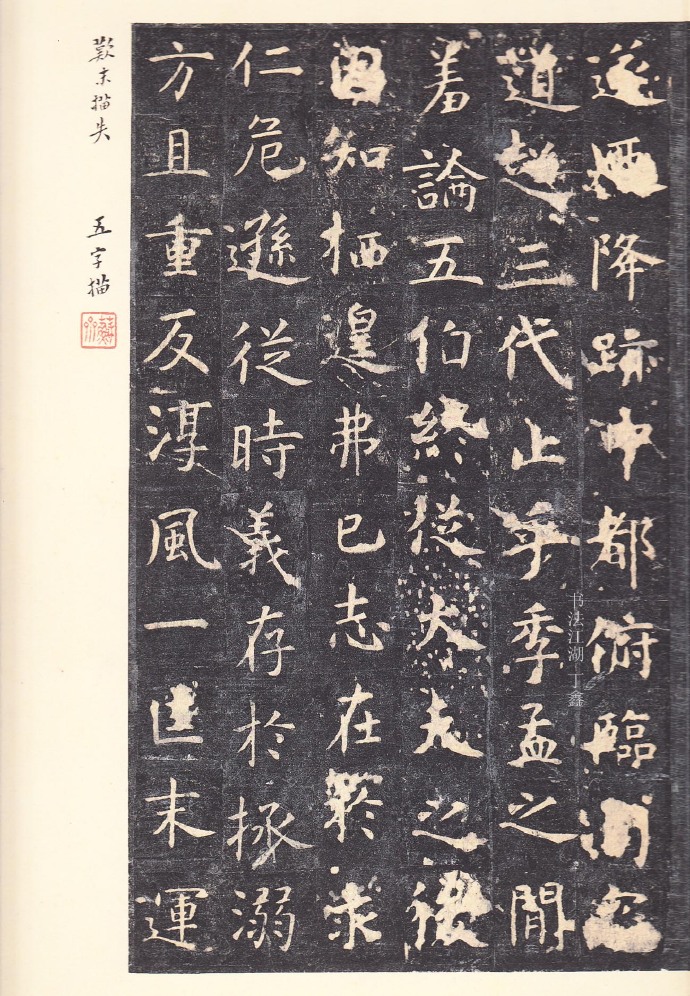 遂降跡中都俯臨
道超三代止乎季孟之間
羞論五伯終從大夫之後
固知栖遑弗已志在於求
仁危遜從時義存於拯溺
方且重反淳風一匡末運
歎末描失 五字描
书法江湖 丁鑫